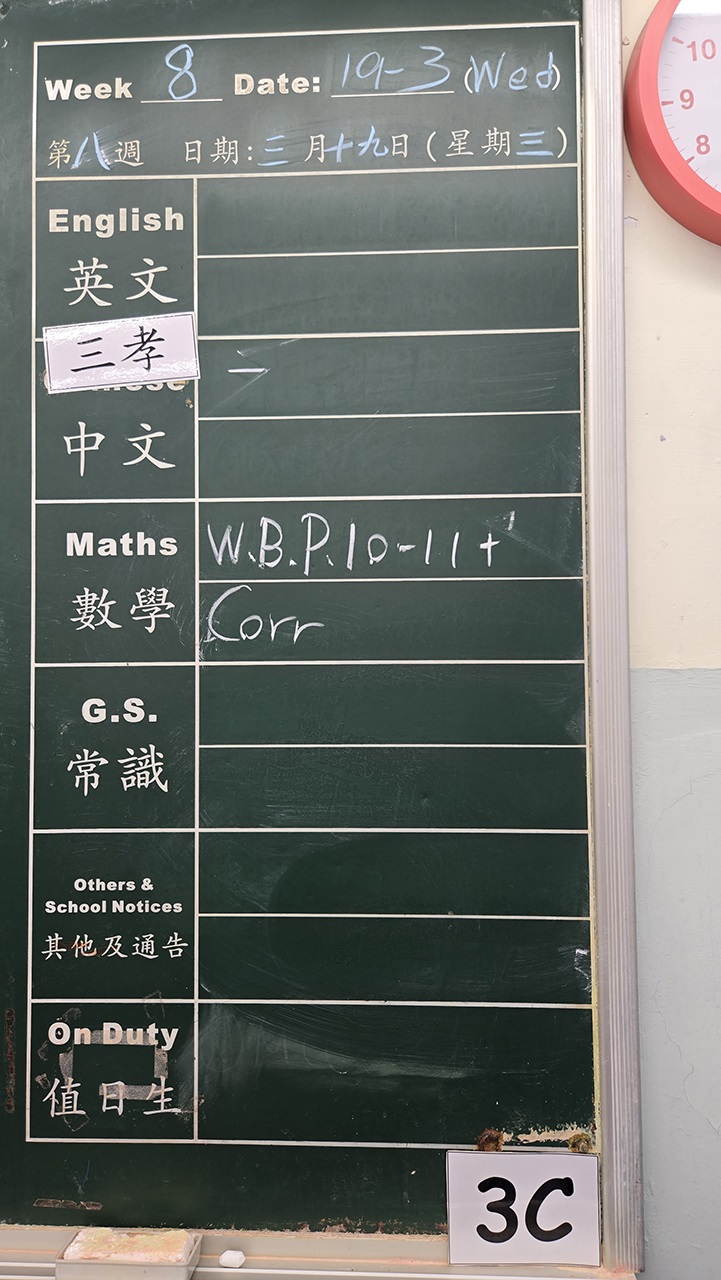 Week 8 Date: 19-3 (Wed)
第八週 日期:三月十九日(星期三)
English
英文
三孝
中文
Maths W.B.P.10-11+
數學 Corr
G.S.
常識
Others &
School Notices
其他及通告
On Duty
值日生
3C
10
9
8